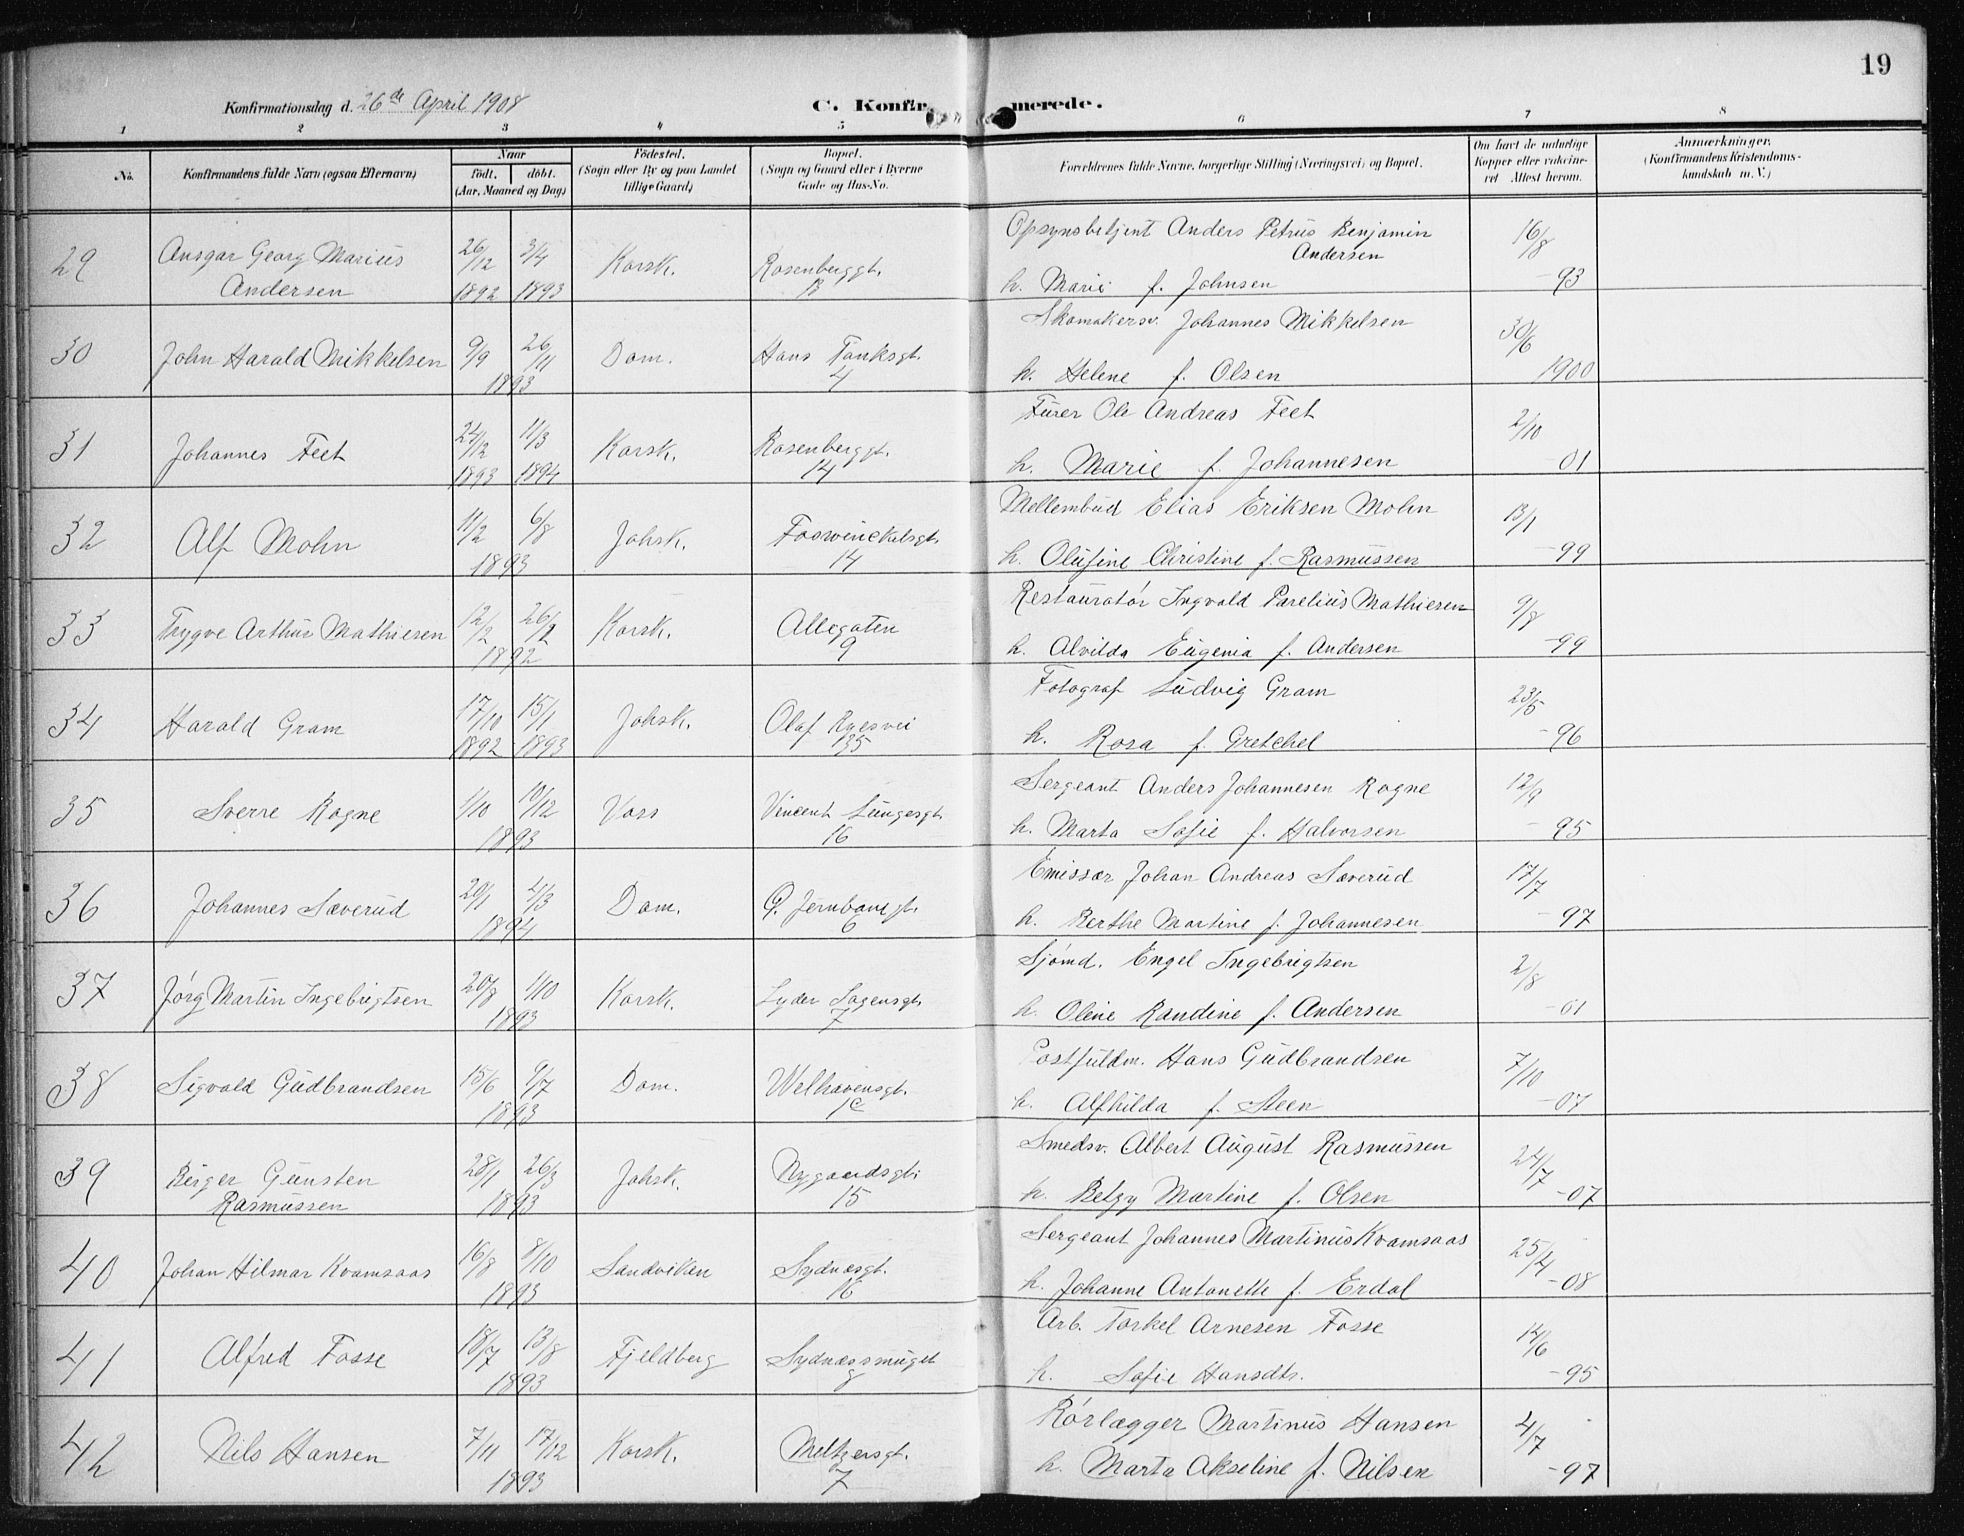 19
Konfirmationsdag d. 26de April 1908
C. Konfir merede.
1 2 3 4 5 6 7 8
No. Konfirmandens fulde Navn (ogsaa Efternavn) Naar født. døbt. (Aar, Maaned og Dag) Fødested. (Sogn eller By og paa Landet tillige Gaard) Bopæl. (Sogn og Gaard eller i Byerne Gade og Hus-No. Forældrenes fulde Navne, borgerlige Stilling (Næringsvei) og Bopæl. Om havt de naturlige Kopper eller vaccineret Attest herom. Anmærkninger. (Konfirmandens Kristendomskundskab m. V.)
29 Ansgar Georg Marius Andersen 26/12 1892 3/4 1893 Korsk. Rosenberggt. Opsynsbetjent Anders Petrus Benjamin Andersen 16/8
h. Marie f. Johnsen -93
30 John Harald Mikkelsen 9/9 26/11 1893 Dom. Hans Tanksgt. 4 Skomakersv. Johannes Mikkelsen 30/6
h. Helene f. Olsen 1900
31 Johannes Feet 24/12 1893 11/3 1894 Korsk. Rosenberggt. 14 Furer Ole Andreas Feet 2/10
h. Marie f. Johannesen -01
32 Alf Mohn 11/2 6/8 1893 Johsk. Foswinckelsgt. 14 Mellembud Elias Eriksen Mohn 13/1
h. Olufine Christine f. Rasmussen -99
33 Trygve Arthur Mathiesen 12/2 26/2 1892 Korsk. Allegaten 9 Restauratør Ingvald Parelius Mathiesen 9/8
h. Alvilda Eugenia f. Andersen -99
34 Harald Gram 17/10 1892 15/1 1893 Johsk. Olaf Ryesvei 135 Fotograf Ludvig Gram 23/5
h. Rosa f. Gretchel -96
35 Sverre Rogne 1/10 10/12 1893 Voss Vincent Lungesgt. 16 Sergeant Anders Johannesen Rogne 12/9
h. Marta Sofie f. Halvorsen -95
36 Johannes Sæverud 20/1 4/3 1894 Dom. G. Jernbanegt. 6 Emissær Johan Andreas Sæverud 17/7
h. Berthe Martine f. Johannesen -97
37 Jørg Martin Ingebrigtsen 20/8 1/10 1893 Korsk. Lyder Sagensgt. 7 Sjømd. Engel Ingebrigtsen 2/8
h. Oline Randine f. Andersen -01
38 Sigvald Gudbrandsen 15/6 9/7 1893 Dom. Welhavensgt. Postfuldm. Hans Gudbrandsen 7/10
h. Alfhilda f. Steen -07
39 Birger Gunsten Rasmussen 28/1 26/3 1893 Johsk. Nygaardsgt. 15 Smedsv. Albert August Rasmussen 24/7
h. Betzy Martine f. Olsen -07
40 Johan Hilmar Kvamsaas 16/8 8/10 1893 Sandviken Sydnesgt. 16 Sergeant Johannes Martinus Kvamsaas 25/4
h. Johanne Antonette f. Erdal -08
41 Alfred Fosse 18/7 13/8 1893 Fjeldberg Sydnæssmuget 8 Arb. Torkel Arnesen Fosse 14/6
h. Sofie Hansdtr. -95
42 Nils Hansen 7/11 17/12 1893 Korsk. Meltzersgt. 7 Rørlægger Martinus Hansen 4/7
h. Marta Akseline f. Nilsen -97